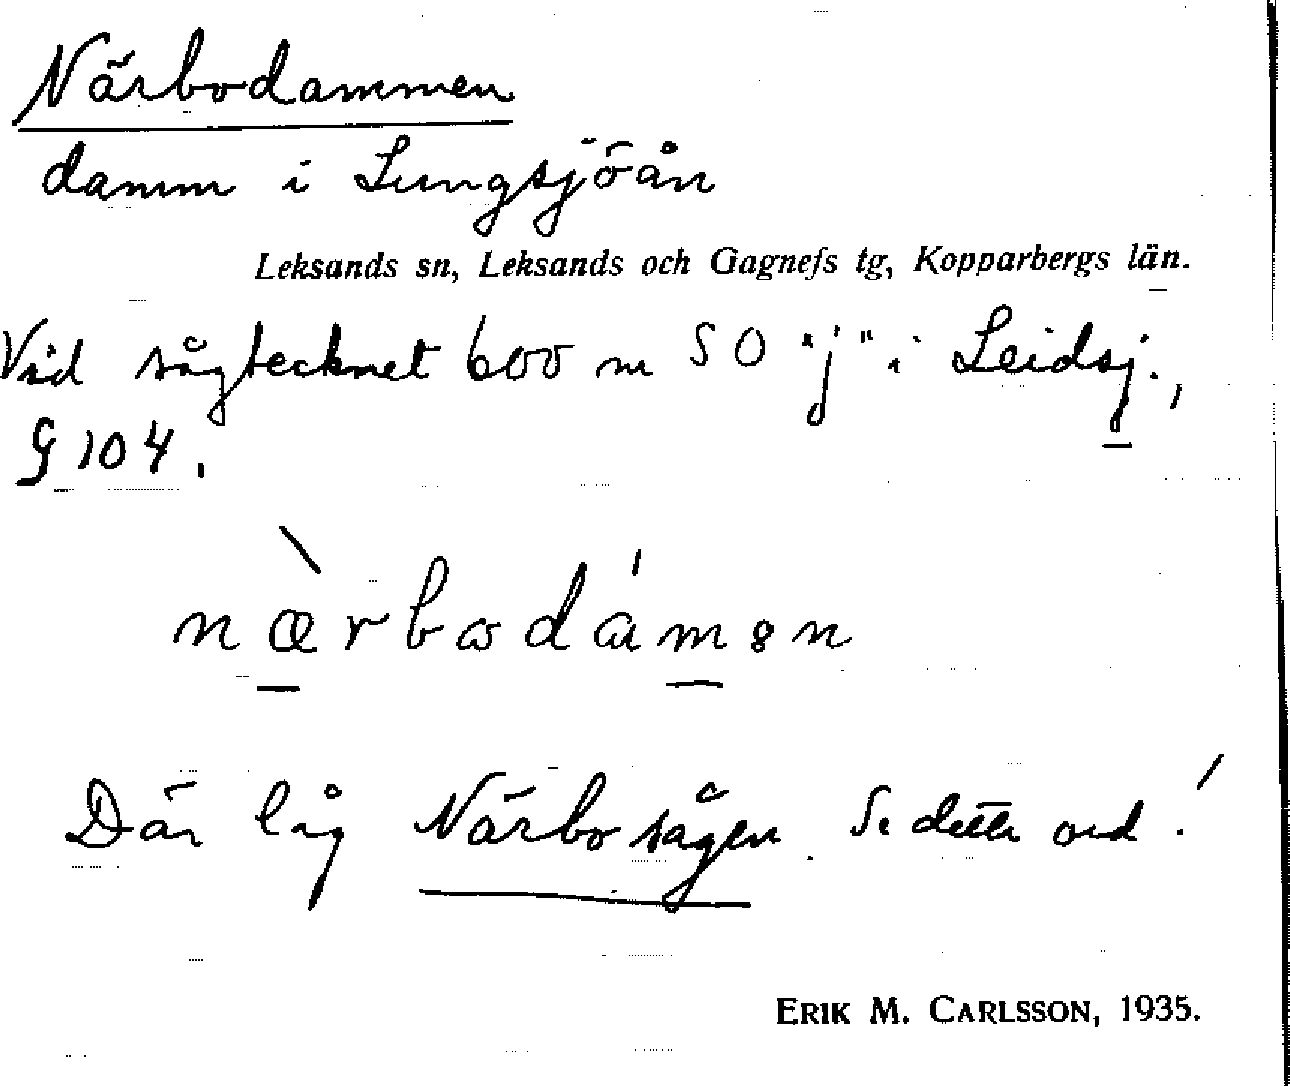 Närbodammen
damm i Lungsjöån
Leksands sn, Leksands och Gagnefs tg, Kopparbergs län.
Vid sågtecknet 600 m SO "j" i Leidsj.,
§ 104.
nὰrbωdάmən
Där låg Närbosågen. Se detta ord!
ERIK M. CARLSSON, 1935.